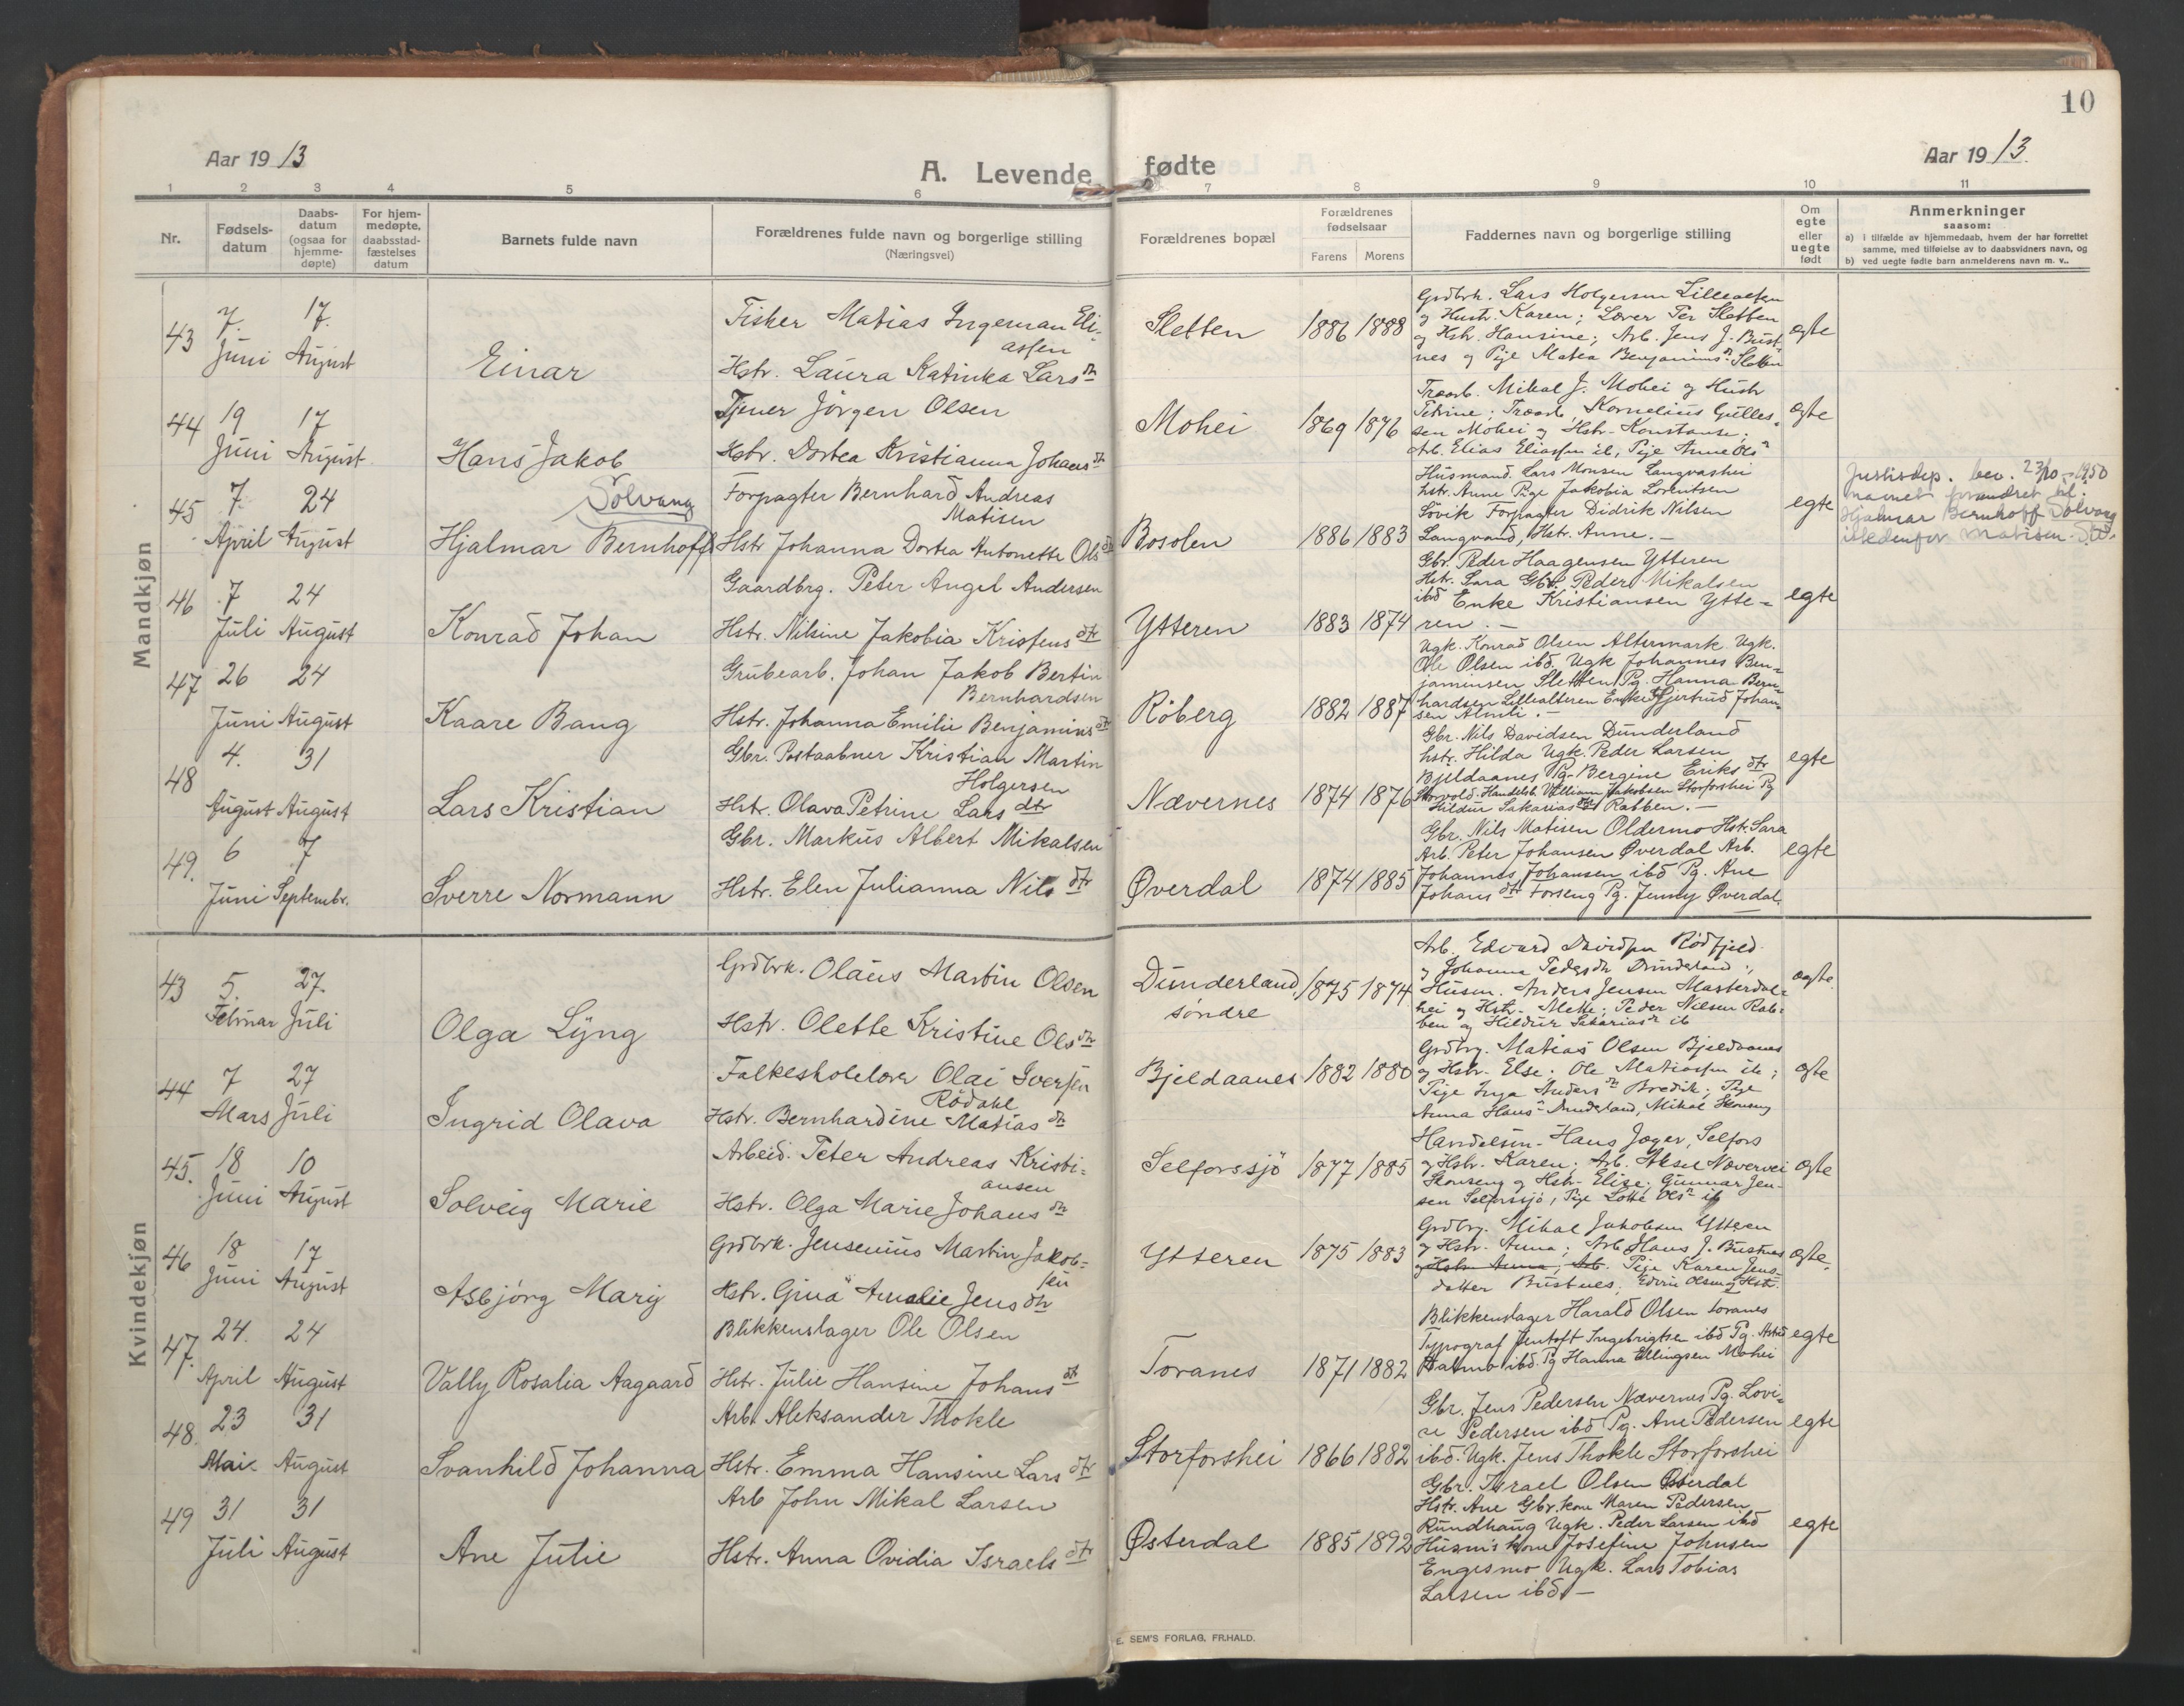 10
Aar 1913
A. Levende fødte
Aar 1913.
1 2 3 4 5 6 7 8 9 10 11
Nr.
Fødsels-
datum
Daabs-
datum
(ogsaa for
hjemme-
døpte)
For hjem-
medøpte,
daabsstad-
fæstelses
datum
Barnets fulde navn
Forældrenes fulde navn og borgerlige stilling
(Næringsvei)
Forældrenes bopæl
Forældrenes
fødselsaar
Farens Morens
Faddernes navn og borgerlige stilling
Om
egte
eller
uegte
født
Anmerkninger
saasom:
a) i tilfælde av hjemmedaab, hvem der har forrettet
samme, med tilføielse av to daabsvidners navn, og
b) ved uegte fødte barn anmelderens navn m. v..
Mandkjøn
43 7. Juni 17. August
Einar
Fisker Matias Ingeman Eli-
assen
Hstr. Laura Katinka Lars dtr
Sletten 1886 1888
Grdbrk. Lars Holgersen Lillealteren
og Hustr. Karen; Lærer Per Sletten
og Hstr. Hansine; Arb. Jens J. Bust-
nes og Pige Matea Benjamins dtr Sletten
egte
44 19 Juni 17 August.
Hans Jakob
Tjener Jörgen Olsen
Hstr. Dortea Kristianna Johans dtr
Mohei 1869 1876
Træarb. Mikal J. Mohei og Hustr
Petrine; Træarb. Kornelius Gulles-
sen Mohei og Hstr. Konstanse;
Arb. Elias Eliassen ib, Pige Anne Ols dtr
egte
45 7. April 24 August
Solvang
Hjalmar Bernhoff
Forpagter Bernhard Andreas
Matisen
Hstr Johanna Dortea Antonette Ols dtr
Bosolen 1886 1883
Husmand. Lars Monsen Langvashei
hstr. Anne Pige Jakobia Lorentsen
Sövik Forpagter Didrik Nilsen
Langvand, Hstr. Anne. -
egte
Justisdep. bev. 23/10-1950
navnet forandret til
Hjalmar Bernhoff Solvang
istedenfor Matisen.
46 7 Juli 24 August
Konrad Johan
Gaardbrg. Peter Angel Andersen
Hstr. Nilsine Jakobia Kristens dtr
Ytteren 1883 1874
Gbr. Peder Haagensen Ytteren
Hstr. Sara Gbr. Peder Mikalsen
ibd Enke Kristiansen Ytte-
ren. -
egte
47 26 Juni 24 August
Kaare Bang
Grubearb. Johan Jakob Bertin
Bernhardsen
Hstr. Johanna Emilie Benjamins dtr
Röberg 1882 1887
Ugk. Konrad Olsen Altermark Ugk.
Ole Olsen ibd. Ugk Johannes Ben-
jaminsen Sletten Pg. Hanna Bern-
hardsen Lillealteren Enke Gjertrud Johan-
sen . -
48 4. August 31 August
Lars Kristian
Gbr. Postaabner Kristian Martin
Holgersen
Hstr. Olava Petrine Lars dtr
Nævernes 1874 1876
Gbr. Nils Davidsen Dunderland
hstr. Hilda Ugk. Peder Larsen
Bjeldaanes Pg. Bergine Eriks dtr
Storvold. Handelsb. Villiam Jakobsen Storforshei Pg
Hildur Sakarias dtr Rabben. -
egte
49. 6 Juni 7 Septembr.
Sverre Normann
Gbr. Markus Albert Mikalsen
Hstr. Elen Julianna Nils dtr
Øverdal 1874 1885
Gbr. Nils Matisen Oldermo Hst. Sara
Arb. Peter Johansen Øverdal Arb.
Johannes Johansen ibd Pg. Ane
Johans dtr Forseng Pg. Jenny Øverdal.
egte
Kvindekjøn
43 5. Februar 27. Juli
Olga Lyng
Grdbrk. Olaus Martin Olsen
Hstr. Olette Kristine Ols dtr
Dunderland, 1875 1874
søndre
Arb. Edvard Davidsen Rödfjeld
og Johanna Peders dtr Dunderland;
Husm. Anders Jensen Masterdal-
hei og Hstr. Mette; Peder Nilsen Rab-
ben og Hildur Sakarias dtr ib
egte.
44 7 Mars 27 Juli
Ingrid Olava
Folkeskolelærer Olai Iversen
Rödahl
Hstr. Bernhardine Matias dtr
Bjeldaanes 1882 1880
Grdbrg. Matias Olsen Bjeldaanes
og Hstr. Else; Ole Matiassen ib;
Pige Inga Anders dtr Bredik; Pige
Anna Hans dtr Dunderland, Mikal Skonseng
egte
45. 18 Juni 10 August
Solveig Marie
Arbeid. Peter Andreas Kristi-
ansen
Hstr. Olga Marie Johans dtr
Selforssjö 1877 1885
Handelsm. Hans Jæger, Selfors
og Hstr. Karen; Arb. Aksel Nævernei
Skonseng og Hstr. Elise; Gunnar Jen-
sen Selforssjö, Pige Lotte Ols dtr ib
egte
46 18 Juni 17 August
Asbjörg Mary
Grdbrk. Jensenius Martin Jakob-
sen
Hstr. Gina Amalie Jens dtr
Ytteren 1875 1883
Grdbrg. Mikal Jakobsen Ytteren
og Hstr. Anna; Arb. Hans J. Bustnes
og Hstr. Anna, Arb. Pige Karen Jens-
datter Bustnes; Edvin Olsen og Hstr.
egte.
47. 24. April 24 August
Vally Rosalia Aagaard
Blikkenslager Ole Olsen
Hstr. Julie Hansine Johans dt
Toranes 1871 1882
Blikkenslager Harald Olsen Toranes
Typograf Jentoft Ingebrigtsen ibd Pg. Astrid
ibd. Pg Hanna Ellingsen Mohei
egte
48. 23 Mai 31 August
Svanhild Johanna
Arb. Aleksander Thokle
Hstr. Emma Hansine Lars dtr
Storforshei 1866 1882
Gbr. Jens Pedersen Nævernes Pg. Lovi-
se Pedersen ibd Pg. Ane Pedersen
ibd. Ugk. Jens Thokle Storforshei
egte
49 31 Juli 31 August
Ane Julie
Arb John Mikal Larsen
Hstr. Anna Ovidia Israels dtr
Østerdal 1885 1892
Gbr. Israel Olsen Østerdal
Hstr. Ane Gbr. kone Maren Pedersen
Rundhaug Ugk. Peder Larsen ibd
Husm's kone Josefine Johnsen
Engesmo Ugk. Lars Tobias
Larsen ibd. -
egte
E. SEM'S FORLAG, FR.HALD.